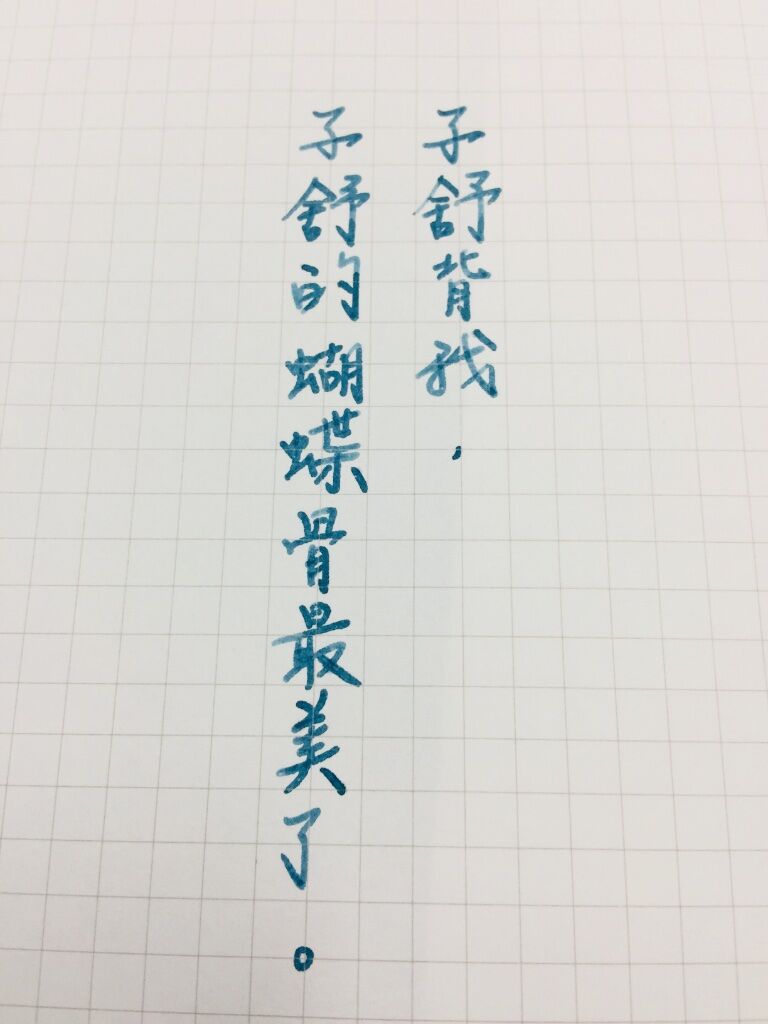 子舒背我，
子舒的蝴蝶骨最美了。